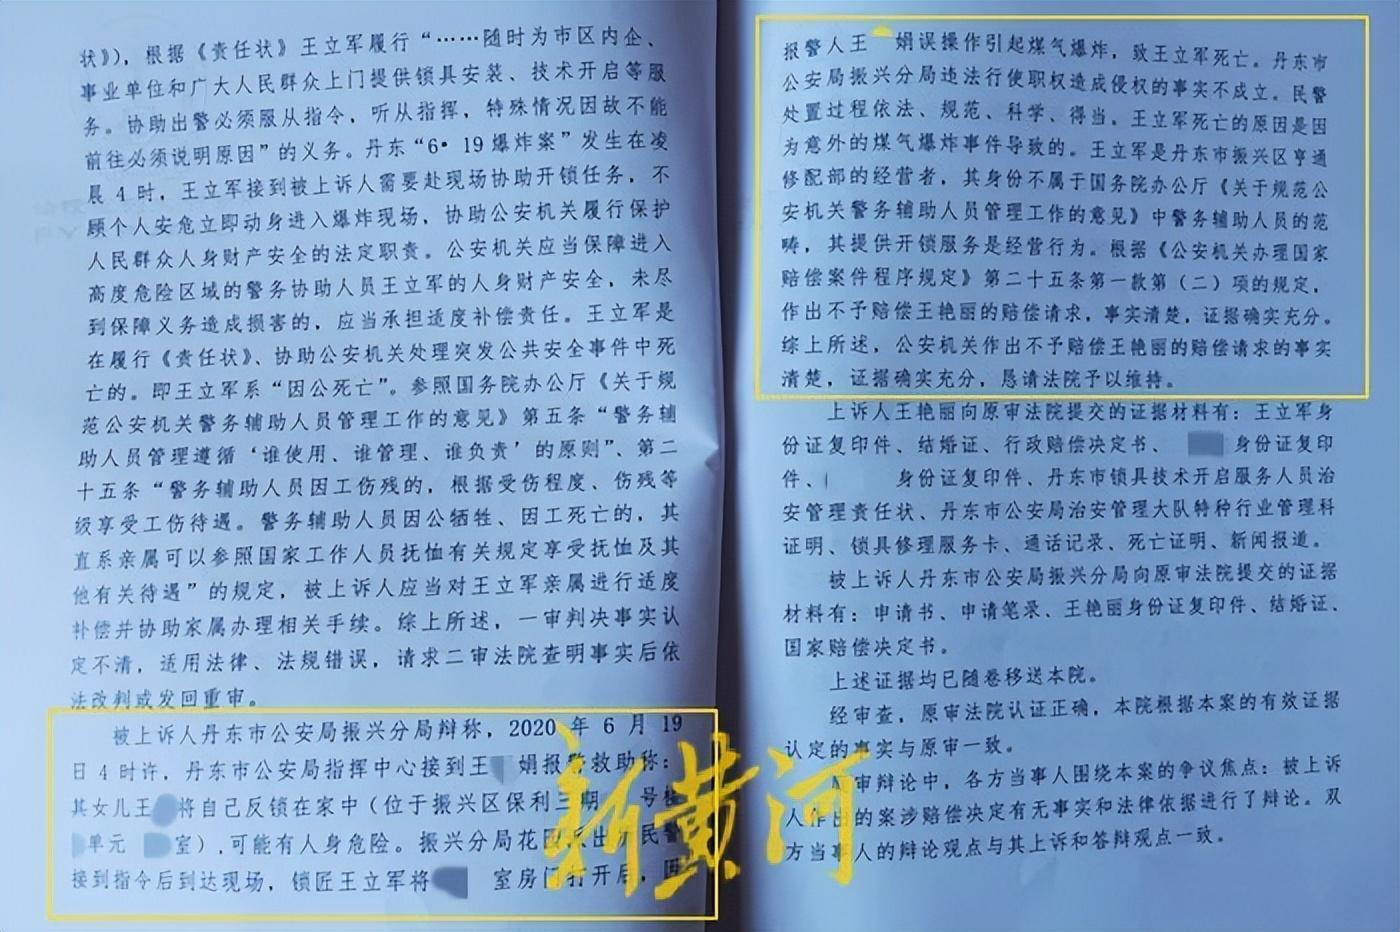 状》)，根据《责任状》王立军履行“……随时为市区内企、
事业单位和广大人民群众上门提供锁具安装、技术开启等服
务。协助出警必须服从指令，听从指挥，特殊情况因故不能
前往必须说明原因”的义务。丹东“6·19爆炸案”发生在凌
晨4时，王立军接到被上诉人需要赴现场协助开锁任务，不
顾个人安危立即动身进入爆炸现场，协助公安机关履行保护
人民群众人身财产安全的法定职责。公安机关应当保障进入
高度危险区域的警务协助人员王立军的人身财产安全，未尽
到保障义务造成损害的，应当承担适度补偿责任。王立军是
在履行《责任状》、协助公安机关处理突发公共安全事件中死
亡的。即王立军系“因公死亡”。参照国务院办公厅《关于规
范公安机关警务辅助人员管理工作的意见》第五条“警务辅
助人员管理遵循‘谁使用、谁管理、谁负责’的原则”、第二
十五条“警务辅助人员因工伤残的，根据受伤程度、伤残等
级享受工伤待遇。警务辅助人员因公牺牲、因工死亡的，其
直系亲属可以参照国家工作人员抚恤有关规定享受抚恤及其
他有关待遇”的规定，被上诉人应当对王立军亲属进行适度
补偿并协助家属办理相关手续。综上所述，一审判决事实认
定不清，适用法律、法规错误，请求二审法院查明事实后依
法改判或发回重审。
被上诉人丹东市公安局振兴分局辩称，2020年6月19
日4时许，丹东市公安局指挥中心接到王 娟报警救助称：
其女儿王 将自己反锁在家中（位于振兴区保利三期 号楼
单元 室），可能有人身危险。振兴分局花园派出所民警
接到指令后到达现场，锁匠王立军将 室房门打开后，因
报警人王 娟误操作引起煤气爆炸，致王立军死亡。丹东市
公安局振兴分局违法行使职权造成侵权的事实不成立。民警
处置过程依法、规范、科学、得当。王立军死亡的原因是因
为意外的煤气爆炸事件导致的。王立军是丹东市振兴区亨通
修配部的经营者，其身份不属于国务院办公厅《关于规范公
安机关警务辅助人员管理工作的意见》中警务辅助人员的范
畴，其提供开锁服务是经营行为。根据《公安机关办理国家
赔偿案件程序规定》第二十五条第一款第（二）项的规定，
作出不予赔偿王艳丽的赔偿请求，事实清楚，证据确实充分。
综上所述，公安机关作出不予赔偿王艳丽的赔偿请求的事实
清楚，证据确实充分，恳请法院予以维持。
上诉人王艳丽向原审法院提交的证据材料有：王立军身
份证复印件、结婚证、行政赔偿决定书、 身份证复印
件、 身份证复印件、丹东市锁具技术开启服务人员治
安管理责任状、丹东市公安局治安管理大队特种行业管理科
证明、锁具修理服务卡、通话记录、死亡证明、新闻报道。
被上诉人丹东市公安局振兴分局向原审法院提交的证据
材料有：申请书、申请笔录、王艳丽身份证复印件、结婚证、
国家赔偿决定书。
上述证据均已随卷移送本院。
经审查，原审法院认证正确，本院根据本案的有效证据
认定的事实与原审一致。
审辩论中，各方当事人围绕本案的争议焦点：被上诉
人作出的案涉赔偿决定有无事实和法律依据进行了辩论。双
方当事人的辩论观点与其上诉和答辩观点一致。
新黄河